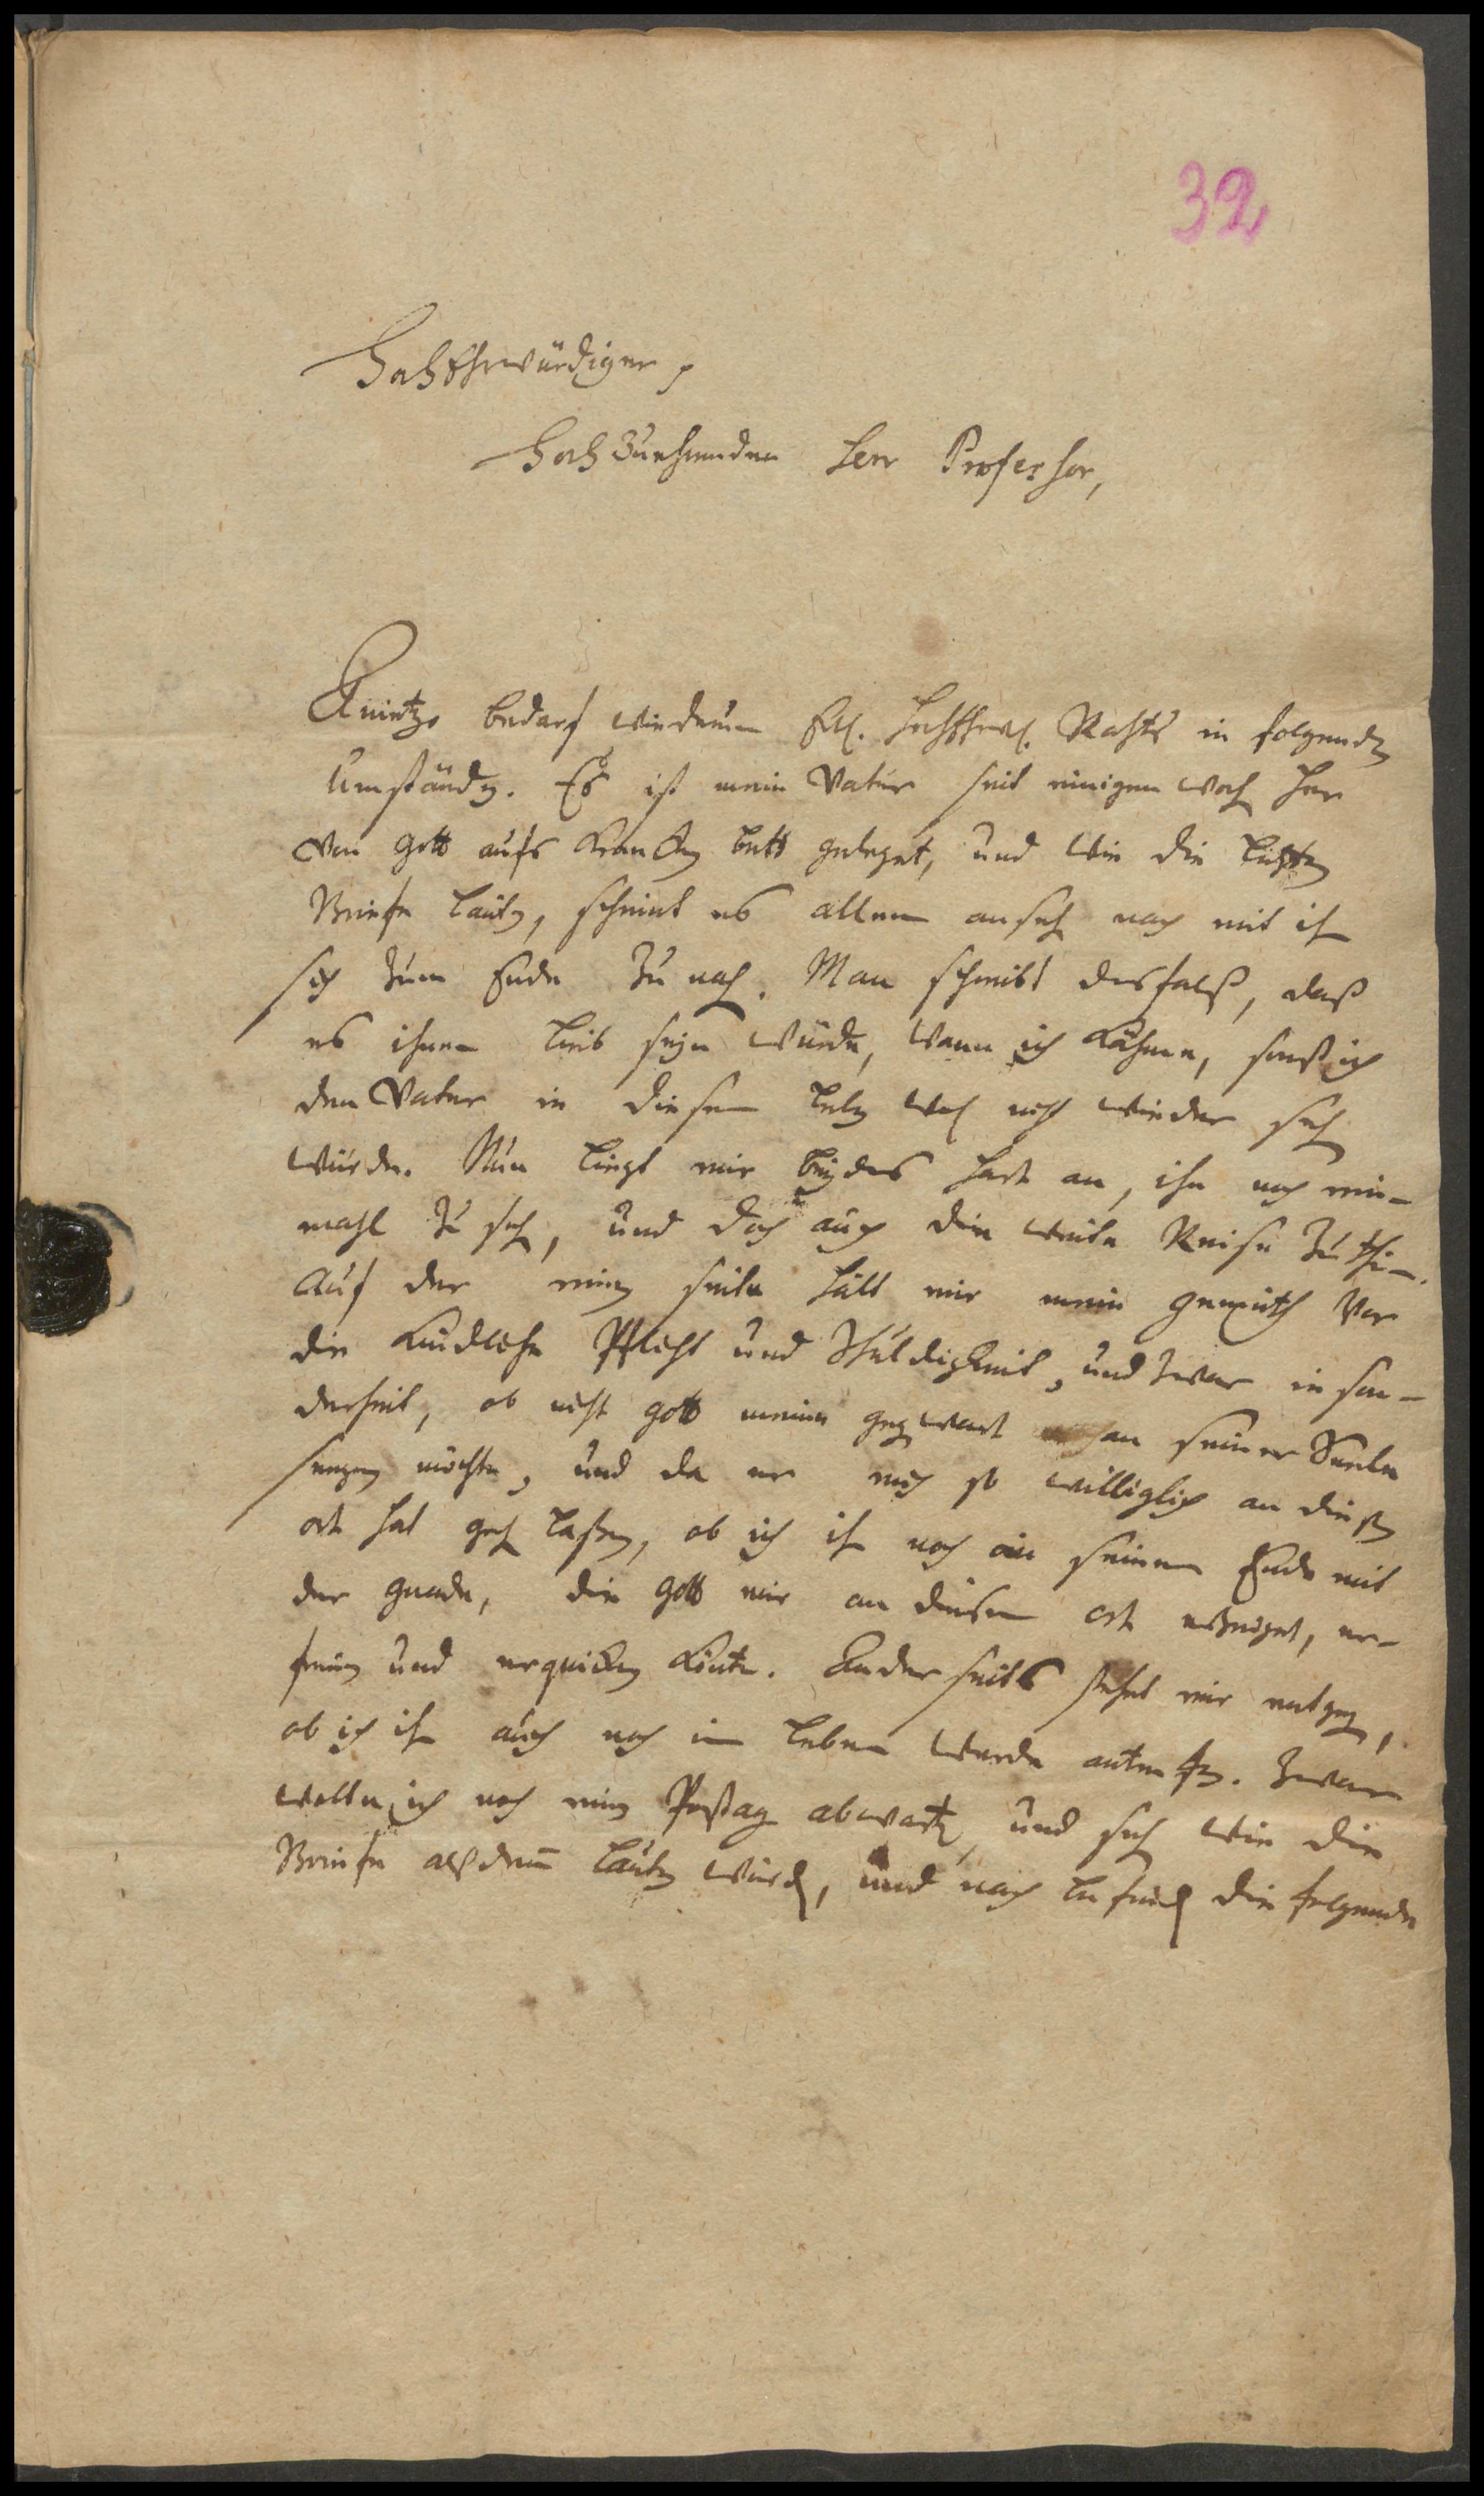 32
HochEhrwürdiger,
HochZuehrender Herr Professor,
Anietzo bedarf wiederum Ew. HochEhrw. Rahts in folgenden
Umständen. Es ist mein Vater seit einigen Wochen her
von Gott aufs Krancken bett geleget, und wie die letzten
Briefe lauten, scheint es allem ansehen nach mit ihm
sich zum Ende zu nahen. Man schreibt desfalß, daß
es ihnen lieb seyn würde, wenn ich kähme, sonst ich
den Vater in diesem leben wohl nicht wieder sehen
würde. Nun liegt mir beydes hart an, ihn noch ein-
mahl zu sehen, und doch auch die weite Reise zu thun.
Auf der einen seite hält mir mein gemüth vor
die Kindliche Pflicht und Schuldigkeit, und zwar in son-
derheit, ob nicht gott meine gegenwart an seiner Seelen
seegnen möchte, und da er mich so williglich an diesen
ort hat gehen laßen, ob ich ihn noch an seinem Ende mit
der gnade, die Gott mir an diesem ort erzeiget, er-
freuen und erquicken könte. Anderseits stehet mir entgegen,
ob ich ihn auch noch im leben werde antreffen. Zwar
wolte ich noch einen Posttag abwarten, und sehen wie die
Briefe alßdenn lauten würden, und nach befinden die folgende